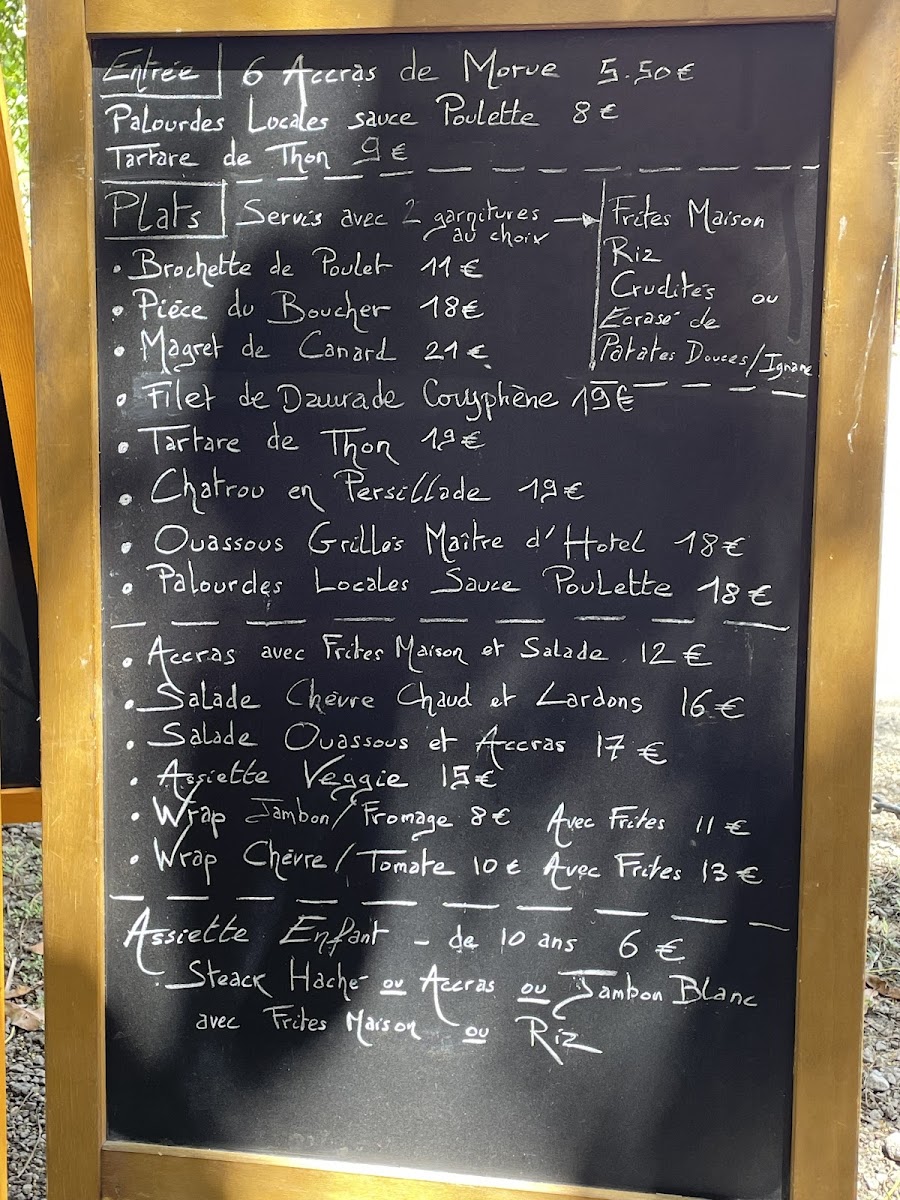 Entrée 6 Accras de Morue 5.50€
Palourdes Locales sauce Poulette 8€
Tartare de Thon 9€
Plats Servis avec 2 garnitures au choix
Frites Maison
Riz
Crudités ou
Ecrasé de
Patates Douces/Igname
• Brochette de Poulet 11€
• Pièce du Boucher 18€
• Magret de Canard 21€
• Filet de Daurade Coryphène 19€
• Tartare de Thon 19€
• Chatrou en Persillade 19€
• Ouassous Grillés Maître d'Hotel 18€
• Palourdes Locales Sauce Poulette 18€
• Accras avec Frites Maison et Salade 12€
• Salade Chèvre Chaud et Lardons 16€
• Salade Ouassous et Accras 17€
• Assiette Veggie 15€
• Wrap Jambon/Fromage 8€ Avec Frites 11€
• Wrap Chèvre/Tomate 10€ Avec Frites 13€
Assiette Enfant - de 10 ans 6€
Steack Haché ou Accras ou Jambon Blanc
avec Frites Maison ou Riz